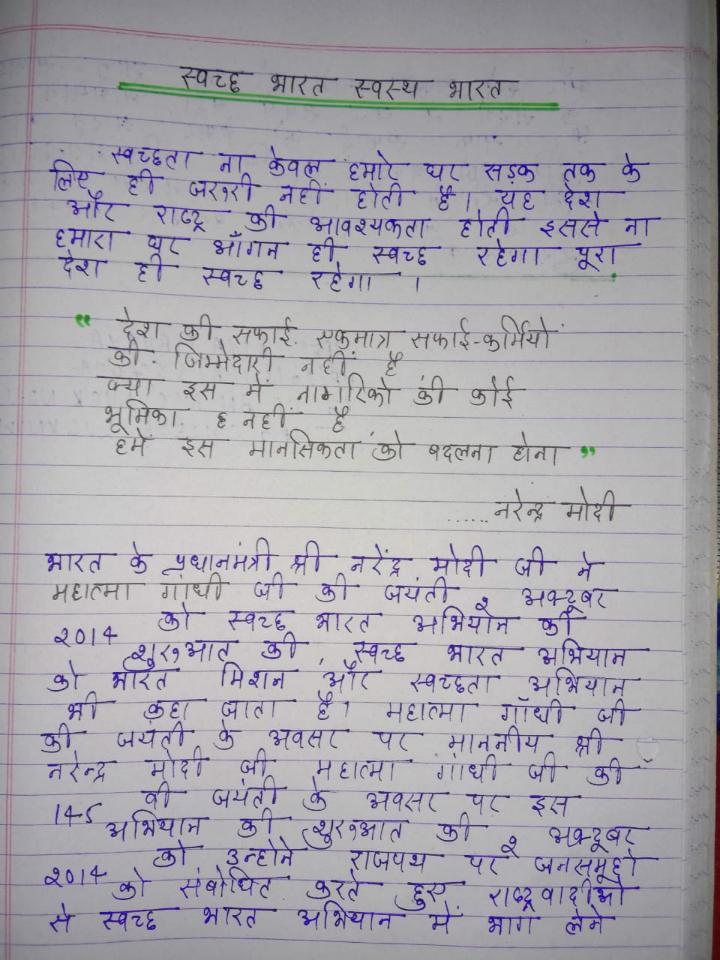 स्वच्छ भारत स्वस्थ भारत
स्वच्छता ना केवल हमारे घर सड़क तक के
लिए ही जरुरी नहीं होती है। यह देश
और राष्ट्र की आवश्यकता होती इससे ना
हमारा घर आँगन ही स्वच्छ रहेगा पूरा
देश ही स्वच्छ रहेगा ।
" देश की सफाई एकमात्र सफाई-कर्मियों
की जिम्मेदारी नहीं है
क्या इस में नागरिको की कोई
भूमिका ह नहीं है
हमे इस मानसिकता को बदलना होना "
......नरेन्द्र मोदी
भारत के प्रधानमंत्री श्री नरेंद्र मोदी जी ने
महात्मा गांधी जी की जयंती २ अक्टूबर
2014 को स्वच्छ भारत अभियान की
शुरुआत की, स्वच्छ भारत अभियान
को भारत मिशन और स्वच्छता अभियान
भी कहा जाता है। महात्मा गाँधी जी
की जयंती के अवसर पर माननीय श्री
नरेन्द्र मोदी जी महात्मा गांधी जी की
145 वी जयंती के अवसर पर इस
अभियान की शुरुआत की २ अक्टूबर
2014 को उन्होने राजपथ पर जनसमूहो
को संबोधित करते हुए राष्ट्रवादीओ
से स्वच्छ भारत अभियान में भाग लेने